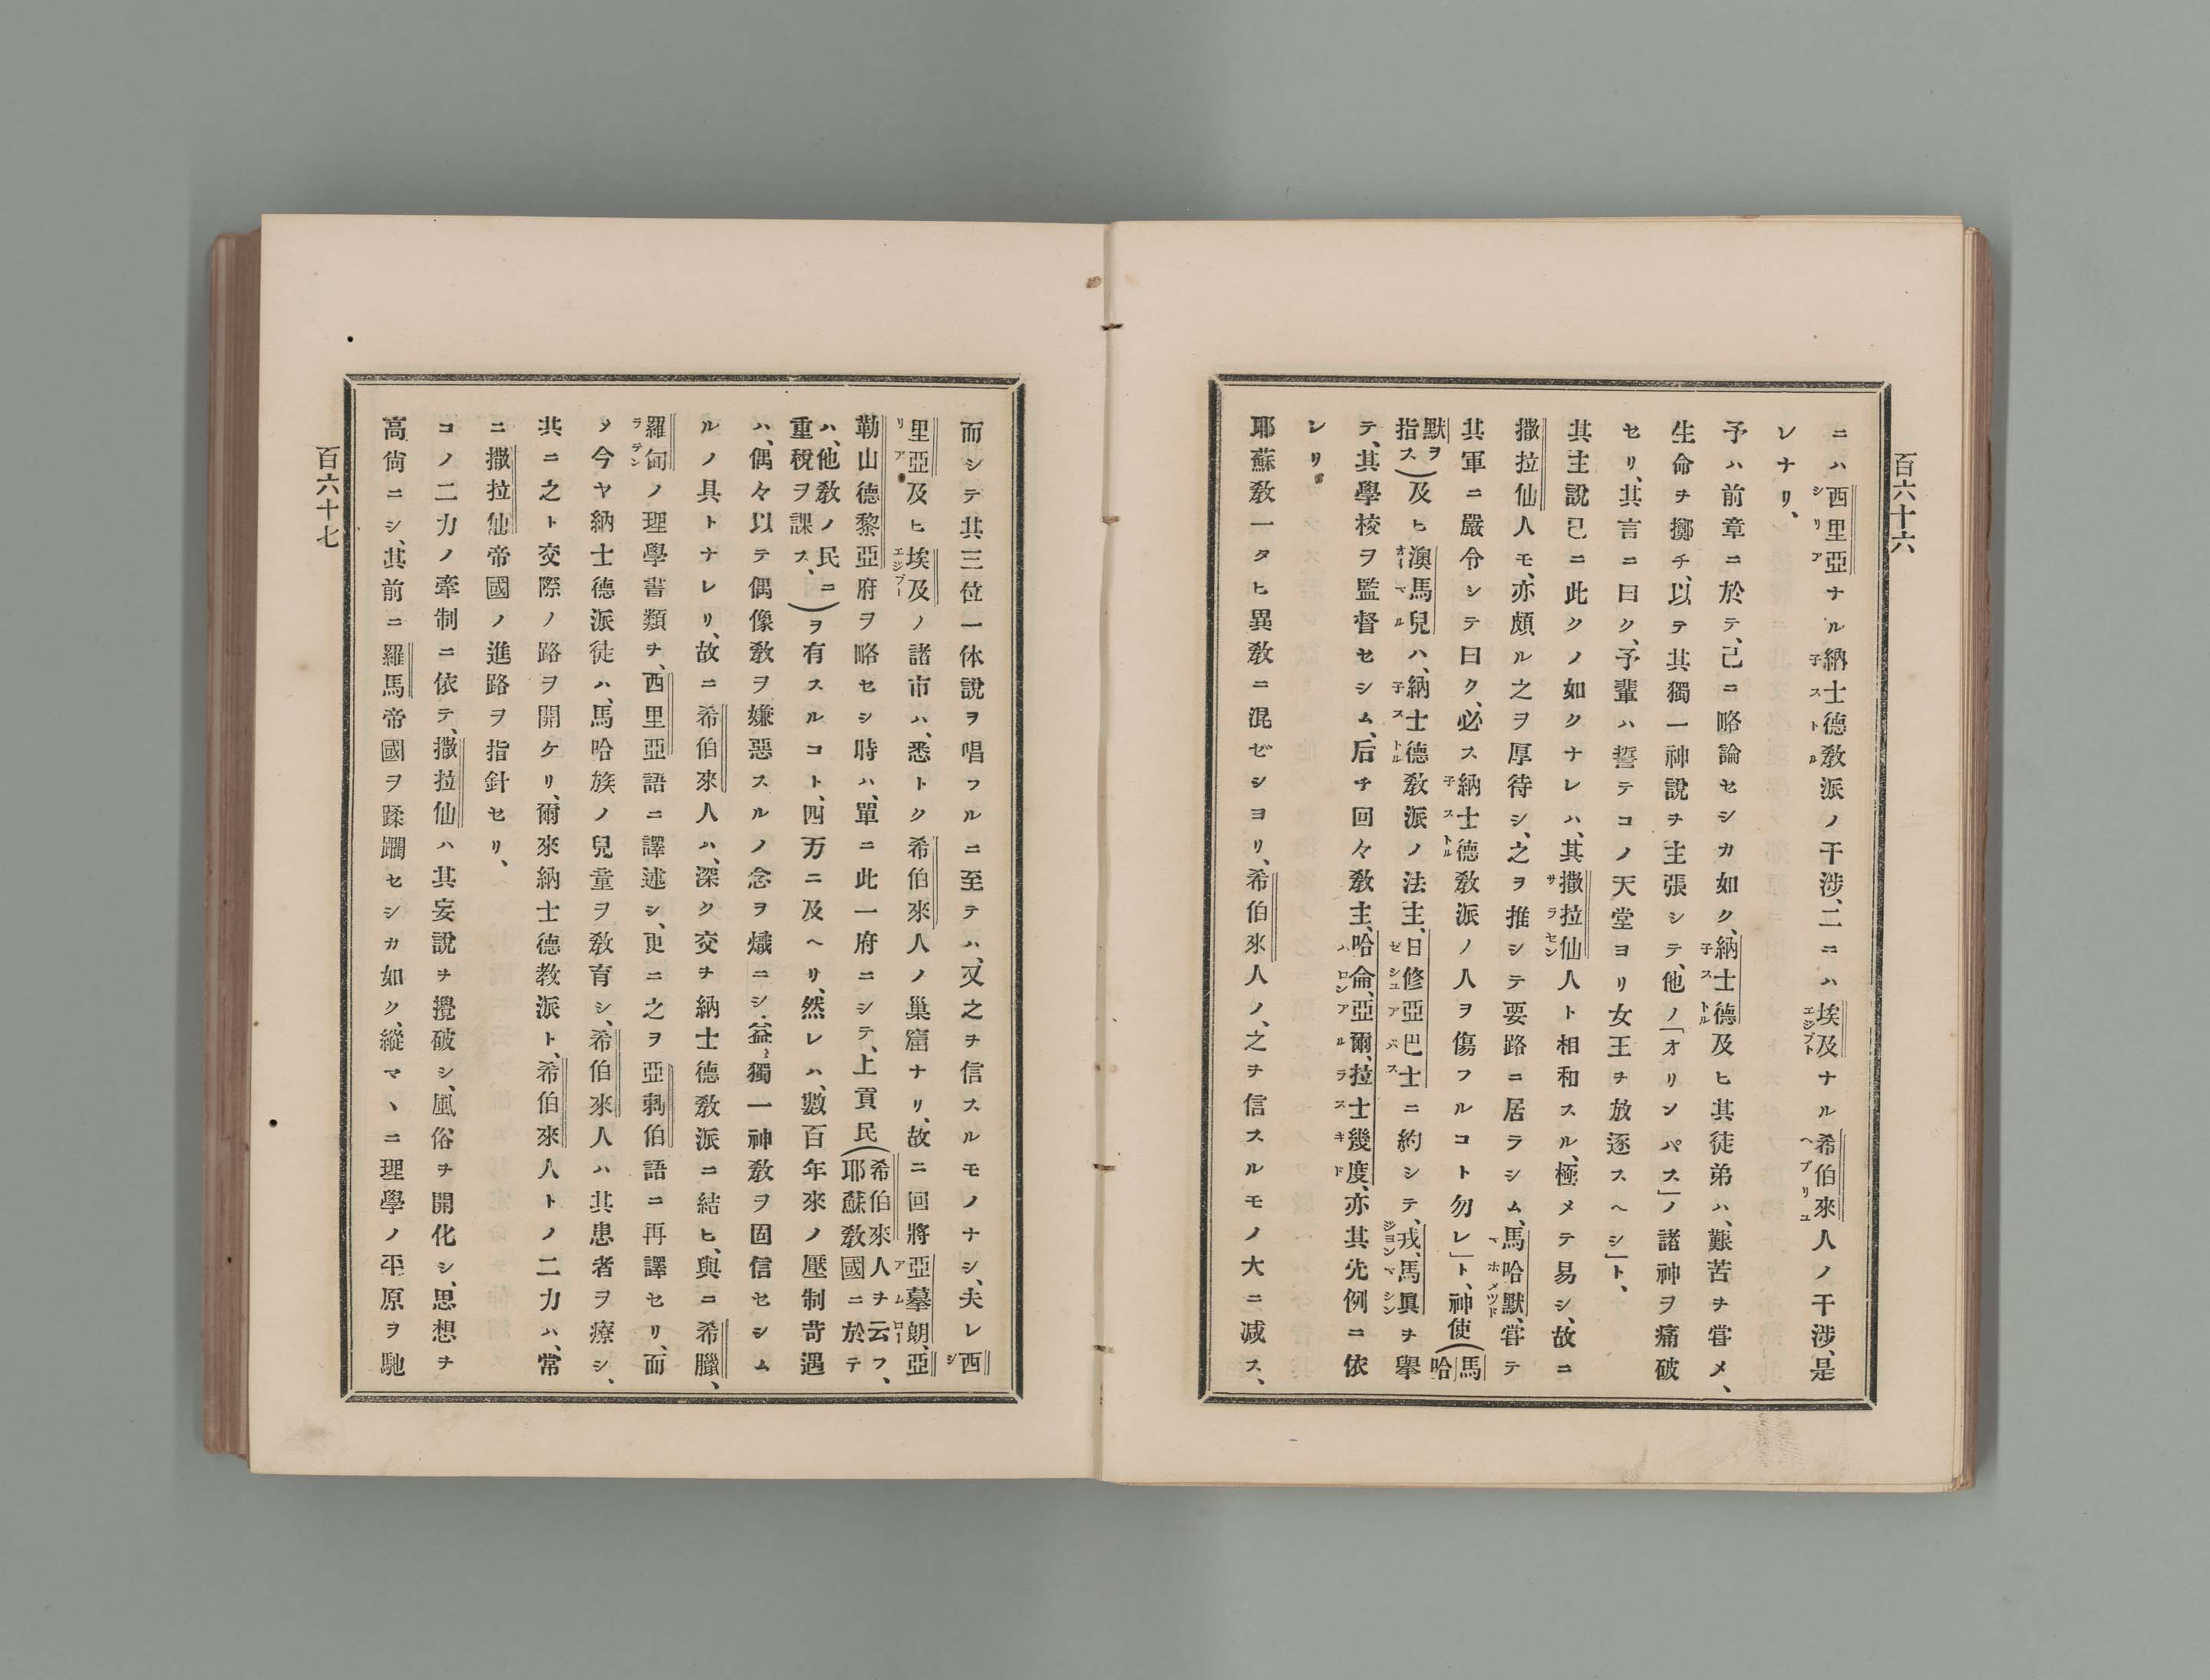 百六十六
ニハ西里亞ナル納士德敎派ノ干涉、二ニハ埃及ナル希伯來人ノ干涉、是
レナリ、
予ハ前章ニ於テ、己ニ略論セシカ如ク、納士德及ヒ其徒弟ハ、艱苦ヲ甞メ、
生命ヲ擲チ、以テ其獨一神說ヲ主張シテ、他ノ「オリンパス」ノ諸神ヲ痛破
セリ、其言ニ曰ク、予輩ハ誓テコノ天堂ヨリ女王ヲ放逐スヘシ」ト、
其主說已ニ此クノ如クナレハ、其撒拉仙人ト相和スル、極メテ易シ、故ニ
撒拉仙人モ、亦頗ル之ヲ厚待シ、之ヲ推シテ要路ニ居ラシム、馬哈默、甞テ
其軍ニ嚴令シテ曰ク、必ス納士德敎派ノ人ヲ傷フルコト勿レ」ト、神使(馬哈
默ヲ指ス)及ヒ澳馬兒ハ、納士德敎派ノ法主、日修亞巴士ニ約シテ、戎、馬具ヲ擧
テ、其學校ヲ監督セシム、后チ回々敎主、哈侖、亞爾、拉士幾度、亦其先例ニ依
レリ
耶蘇敎一タヒ異敎ニ混ゼシヨリ、希伯來人ノ、之ヲ信スルモノ大ニ減ス、
而シテ其三位一体說ヲ唱フルニ至テハ、又之ヲ信スルモノナシ、夫レ西
里亞及ヒ埃及ノ諸市ハ、悉トク希伯來人ノ巢窟ナリ、故ニ回將亞墓朗、亞
勒山德黎亞府ヲ略セシ時ハ、單ニ此一府ニシテ、上貢民(希伯來人ヲ云フ、耶蘇敎國ニ於テ
ハ、他敎ノ民ニ重稅ヲ課ス、)ヲ有スルコト、四万ニ及ヘリ、然レハ、數百年來ノ壓制苛遇
ハ、偶々以テ偶像敎ヲ嫌惡スルノ念ヲ熾ニシ、益、獨一神敎ヲ固信セシム
ルノ具トナレリ、故ニ希伯來人ハ、深ク交ヲ納士德敎派ニ結ヒ、與ニ希臘、
羅甸ノ理學書類ヲ、西里亞語ニ譯述シ、更ニ之ヲ亞剌伯語ニ再譯セリ、而
メ今ヤ納士德派徒ハ、馬哈族ノ兒童ヲ敎育シ、希伯來人ハ其患者ヲ療シ、
共ニ之ト交際ノ路ヲ開ケリ、爾來納士德敎派ト、希伯來人トノ二力ハ、常
ニ撒拉仙帝國ノ進路ヲ指針セリ、
コノ二力ノ牽制ニ依テ、撒拉仙ハ其妄說ヲ攪破シ、風俗ヲ開化シ、思想ヲ
高尙ニシ、其前ニ羅馬帝國ヲ蹂躙セシカ如ク、縱マヽニ理學ノ平原ヲ馳
百六十七